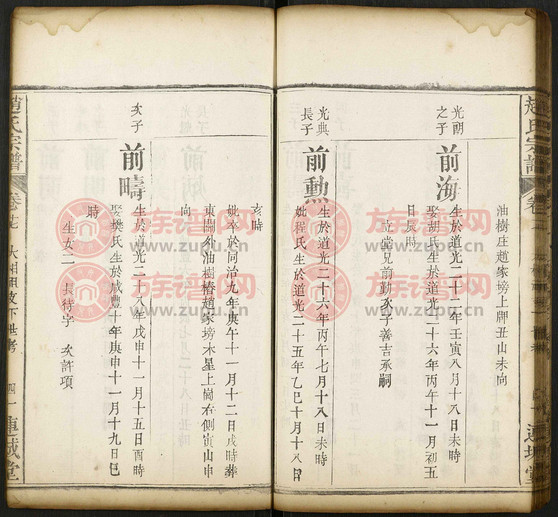 趙氏宗譜
油樹庄趙家塝上牌丑山未向
光朝之子
前海
生於道光二十二年壬寅八月十八日未時
娶胡氏生於道光二十六年丙午十一月初五日辰時
立堂兄前勳次子善吉承嗣
光典長子
前勳
生於道光二十六年丙午七月十八日未時
妣程氏生於道光二十五年乙巳十月十八日
亥時
妣卒於同治九年庚午十一月十二日戌時葬
東關外油樹樁趙家塝木星上崗右側寅山申
向
次子
前疇
生於道光二十八年戊申十一月十五日酉時
娶樊氏生於咸豐十年庚申十一月十九日巳
時
生女二 長待字 次許項
趙氏宗譜
卷七
四一
族谱网
www.zupu.cn